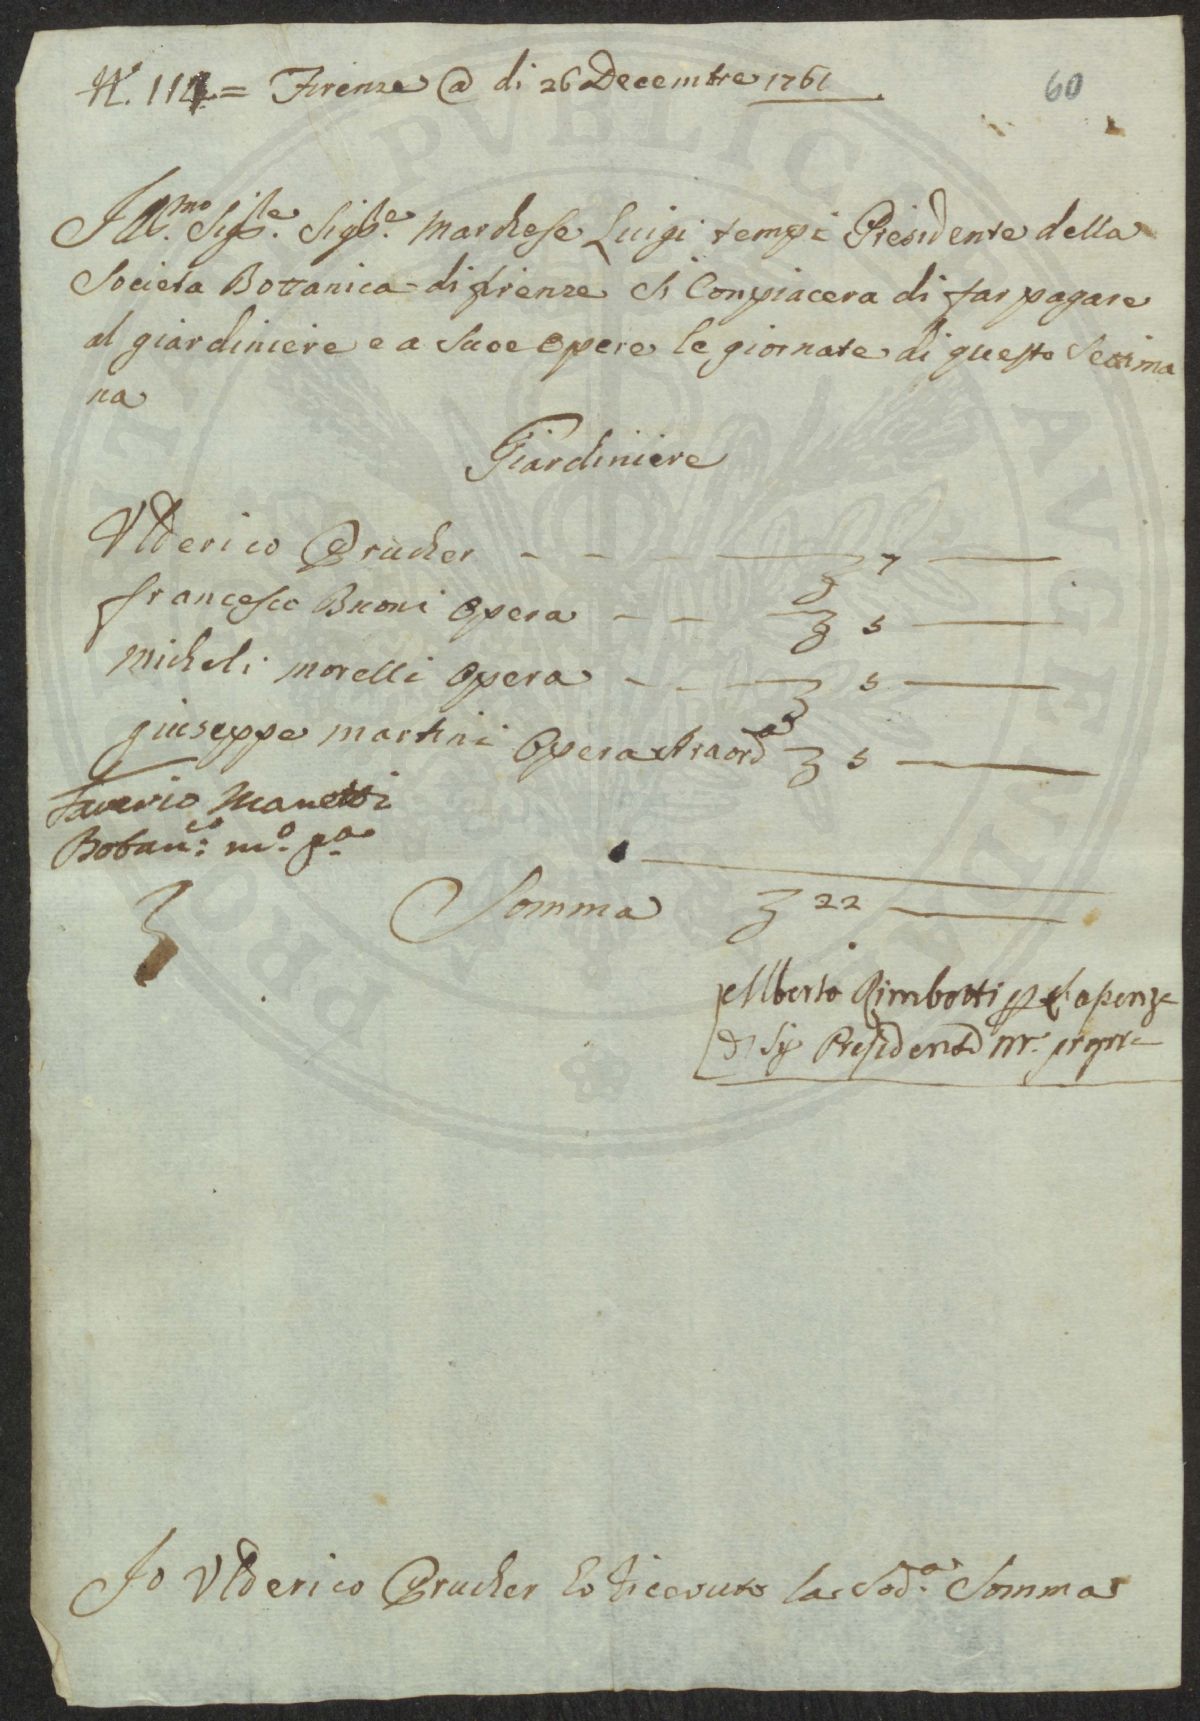 N.° 114 = Firenze @ di 26 Decembre 1761
60
Ill.mo Sig.re Sig.re Marchese Luigi tempi Presidente della
Societa Bottanica di firenze Si Conpiacera di far pagare
al giardiniere e a Sue Opere le giornate di questa Settima
na
Giardiniere
Ulderico Prucher - - - 7
francesco Buoni Opera - - 5
Micheli morelli Opera - - 5
giuseppe martini Opera straord.a 5
Saverio Manetti
Botan.co m.o p.a
Somma 22
Alberto Rimbotti p
Sig Presidente m. propr
Io Ulderico Prucher ho ricevuto la Sod.a Somma
PVBLICAE